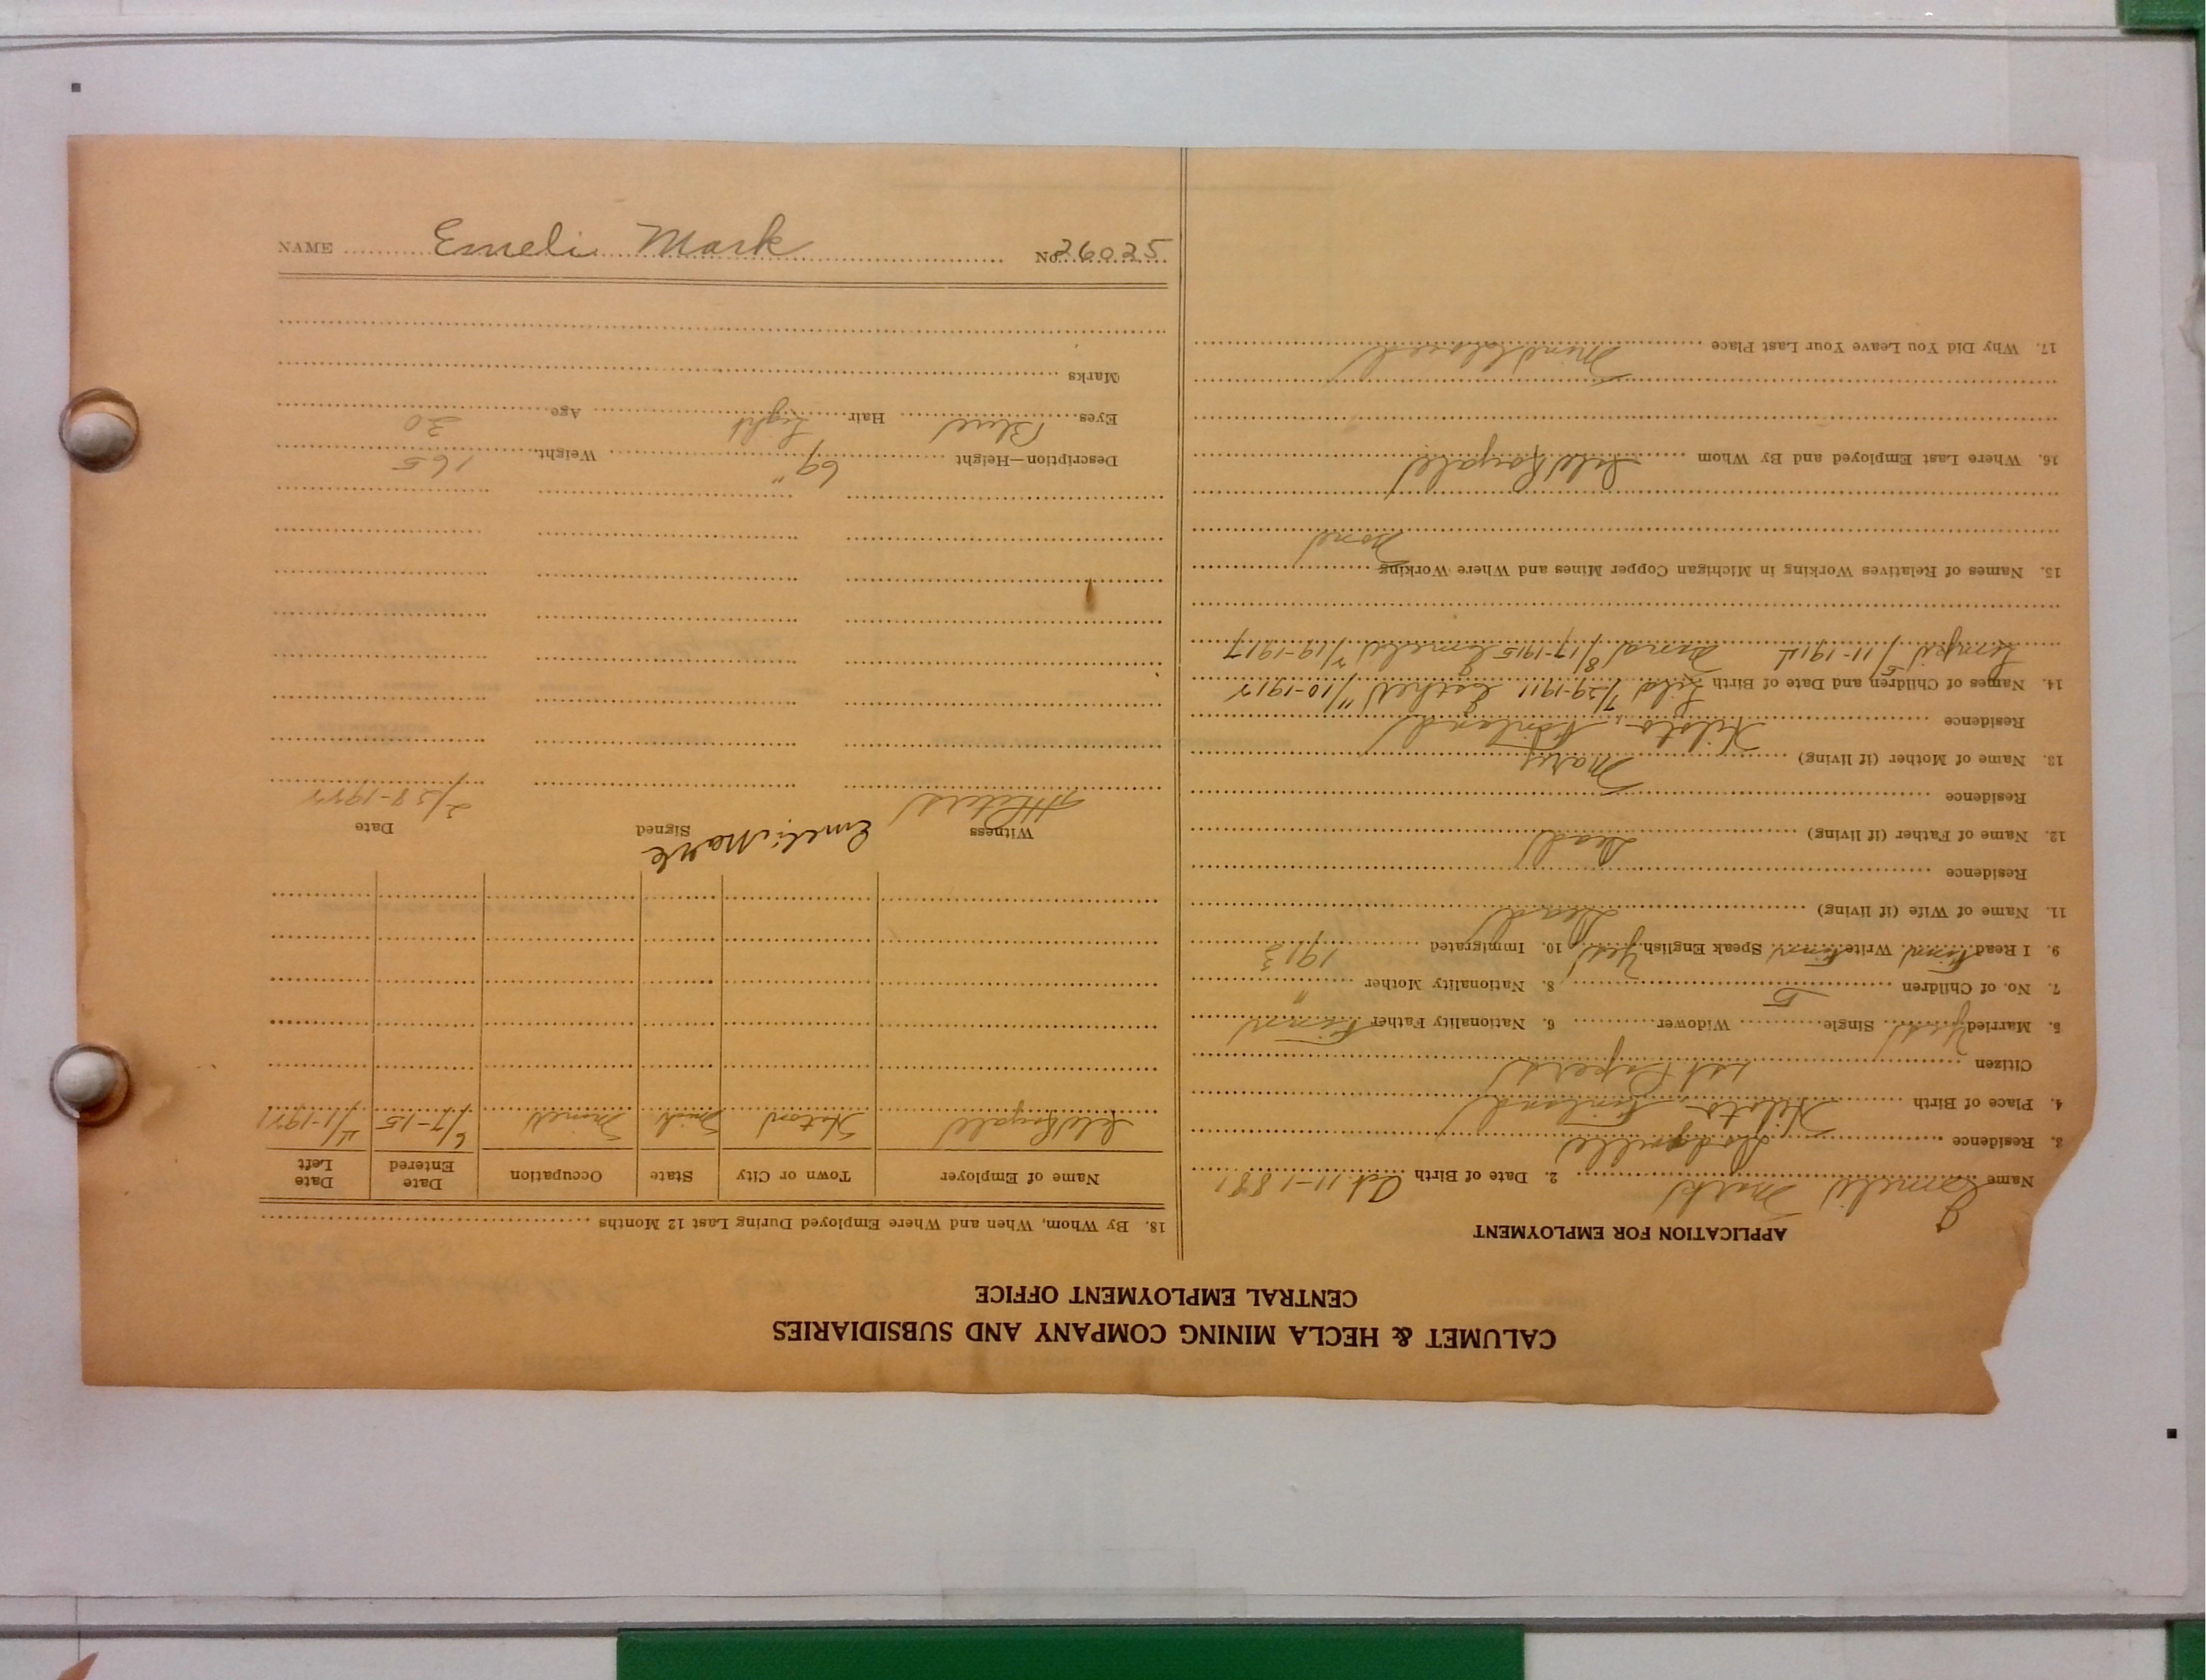 CALUMET & HECLA MINING COMPANY AND SUBSIDIARIES
CENTRAL EMPLOYMENT OFFICE
APPLICATION FOR EMPLOYMENT
Name Emeli Mark 2. Date of Birth Oct. 11-1881
3. Residence
4. Place of Birth Finland
Citizen 1st Papers
5. Married Yes Single Widower 6. Nationality Father Finn
7. No. of Children 5 8. Nationality Mother "
9. I Read Finn Write Finn Speak English Yes 10. Immigrated 1913
11. Name of Wife (if living) Dead
Residence
12. Name of Father (if living) Dead
Residence
13. Name of Mother (if living) Mary
Residence Finland
14. Names of Children and Date of Birth 7/29-1911 11/10-1912
5/11-1914 8/17-1915 7/19-1917
15. Names of Relatives Working in Michigan Copper Mines and Where Working None
16. Where Last Employed and By Whom Isle Royale
17. Why Did You Leave Your Last Place Mine Closed
18. By Whom, When and Where Employed During Last 12 Months
Name of Employer Town or City State Occupation Date Entered Date Left
Isle Royale Hoton Mich Miner 6/7-15 4/1-1921
Witness Signed Emeli Mark Date 2/28-1922
Description—Height 69" Weight 165
Eyes Blue Hair Light Age 30
Marks
NAME Emeli Mark No. 26025